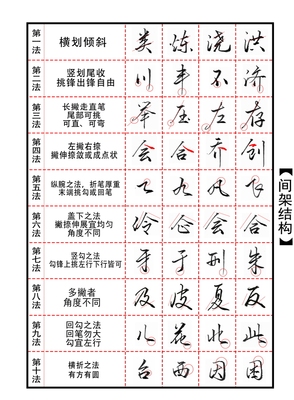 第一法
横划倾斜
类 炼 浇 洪
第二法
竖划尾收
挑锋出锋自由
川 丰 不 济
第三法
长撇走直笔
尾部可挑
可直、可弯
举 压 左 存
第四法
左撇右捺
撇伸捺敛或成点状
会 合 乔 创
第五法
纵腕之法,折笔厚重
末端挑勾或回笔
九 风
第六法
盖下之法
撇捺伸展宜均匀
角度不同
冷 企 会 合
第七法
竖勾之法
勾锋上挑左行下行皆可
牙 于 刑 朱
第八法
多撇者
角度不同
及 波 夏 反
第九法
回勾之法
回笔勿大
勾宜左行
儿 花 此 此
第十法
横折之法
有方有圆
台 西 因 困
【间架结构】